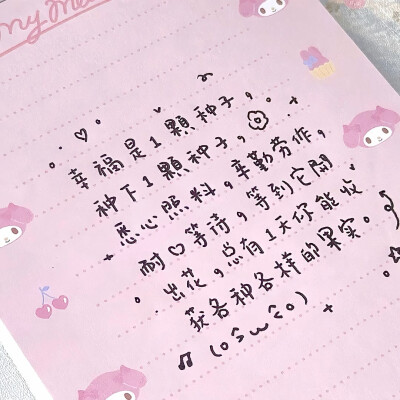 My Me
幸福是1顆种子，
种下1顆种子，
悉心照料，辛勤劳作，
耐♡等待，等到它開
出花，总有1天你能收
获各种各样的果实。
♫(o^ω^o)